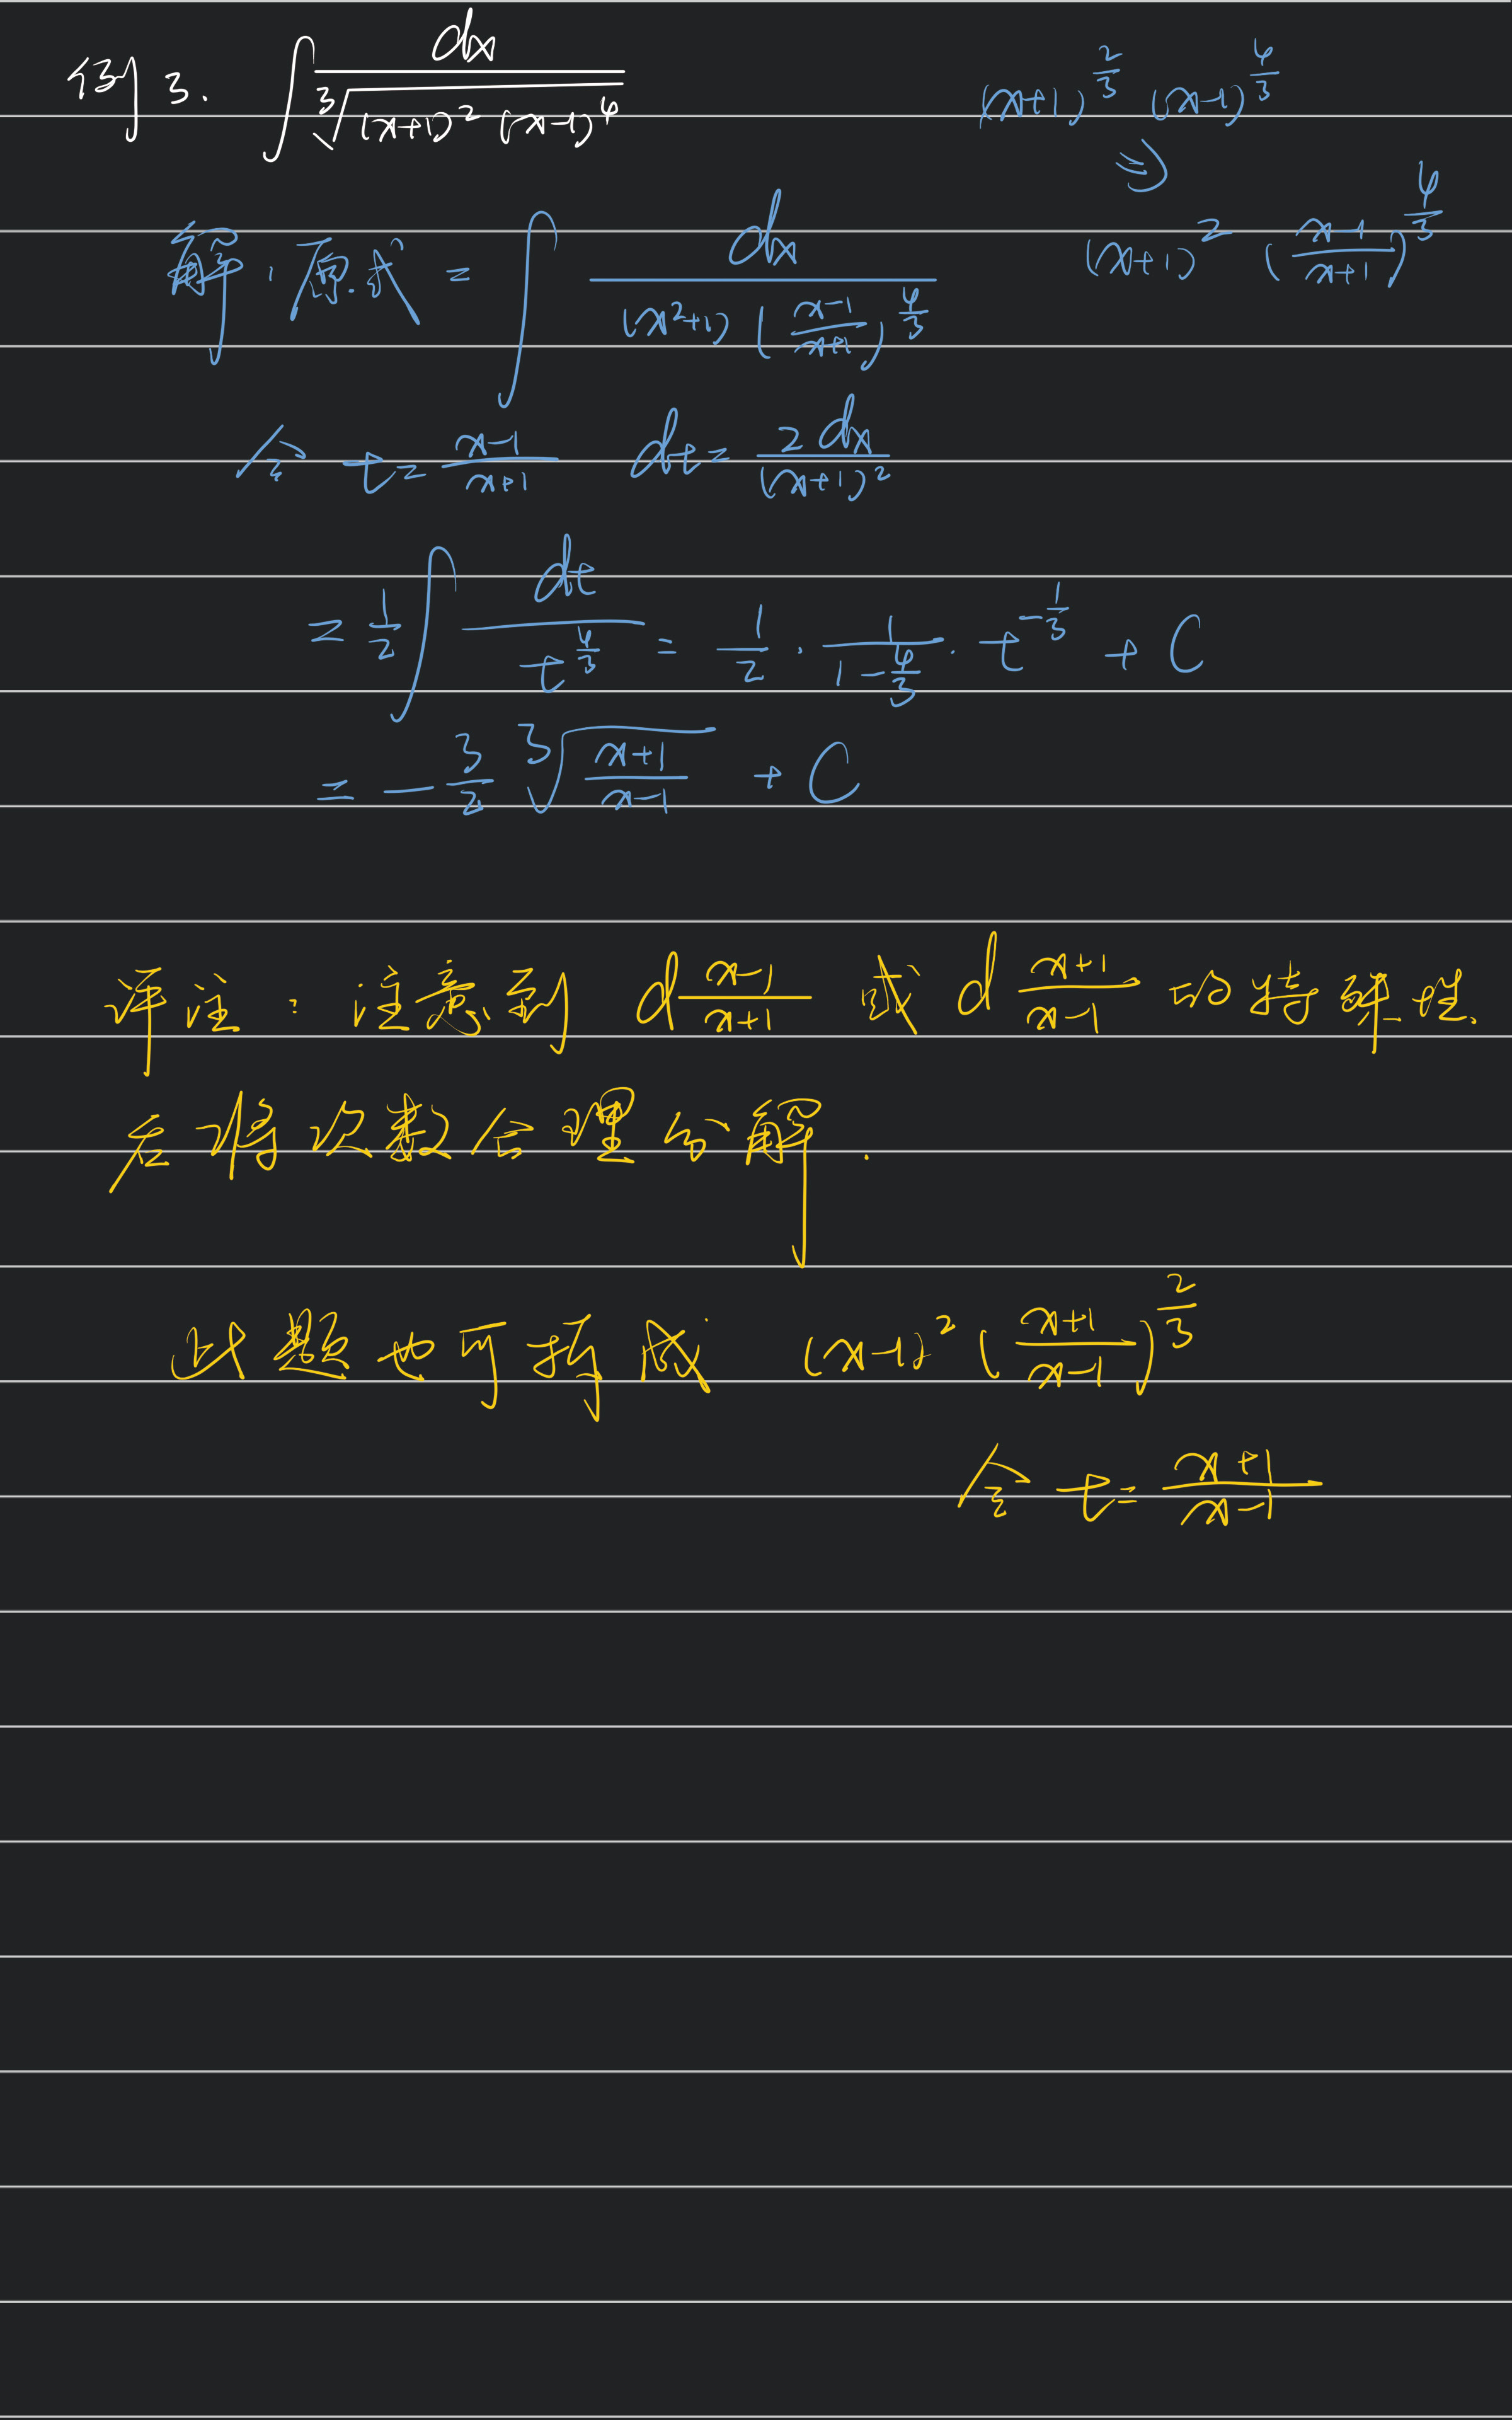 例3. ∫ dx / ∛((x+1)² (x-1)⁴)
(x+1)^(2/3) (x-1)^(4/3)
⇒
(x+1)² ((x-1)/(x+1))^(4/3)
解: 原式 = ∫ dx / ((x²+1) ((x-1)/(x+1))^(4/3))
令 t = (x-1)/(x+1) dt = 2dx/(x+1)²
= 1/2 ∫ dt / t^(4/3) = 1/2 · 1/(1-4/3) · t^(-1/3) + C
= -3/2 ∛((x+1)/(x-1)) + C
评注: 注意到 d (x-1)/(x+1) 或 d (x+1)/(x-1) 的特殊性
后将次数合理分解.
此题也可拆成 (x-1)² ((x+1)/(x-1))^(2/3)
令 t = (x+1)/(x-1)